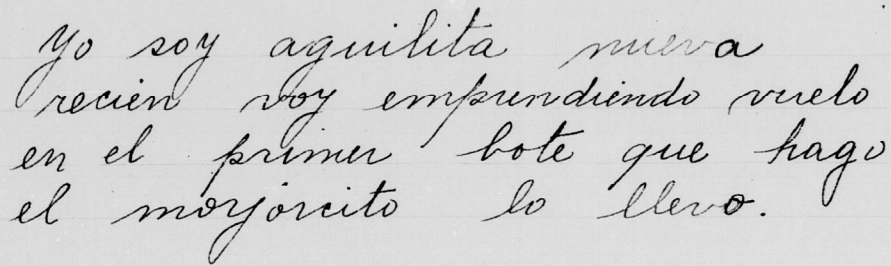 Yo soy aguilita nueva
recien voy emprendiendo vuelo
en el primer bote que hago
el moyorcito lo llevo.